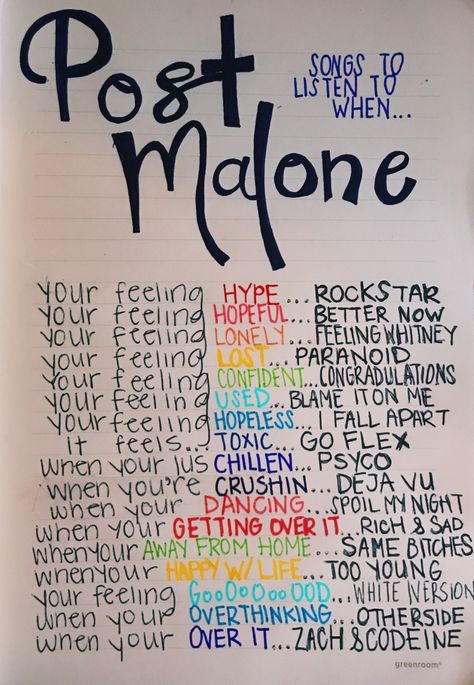 Post
Malone
SONGS TO
LISTEN TO
WHEN...
your feeling HYPE... ROCKSTAR
your feeling HOPEFUL... BETTER NOW
your feeling LONELY... FEELING WHITNEY
your feeling LOST... PARANOID
your feeling CONFIDENT...CONGRADULATIONS
your feeling USED... BLAME IT ON ME
your feeling HOPELESS... I FALL APART
it feels... TOXIC... GO FLEX
when your jus CHILLEN... PSYCO
when you're CRUSHIN... DEJA VU
when your DANCING...SPOIL MY NIGHT
when your GETTING OVER IT... RICH & SAD
when your AWAY FROM HOME... SAME BITCHES
when your HAPPY W/ LIFE... TOO YOUNG
your feeling GOOOOOOOOD...WHITE IVERSON
when your OVERTHINKING... OTHERSIDE
when your OVER IT... ZACH & CODEINE
greenroom®